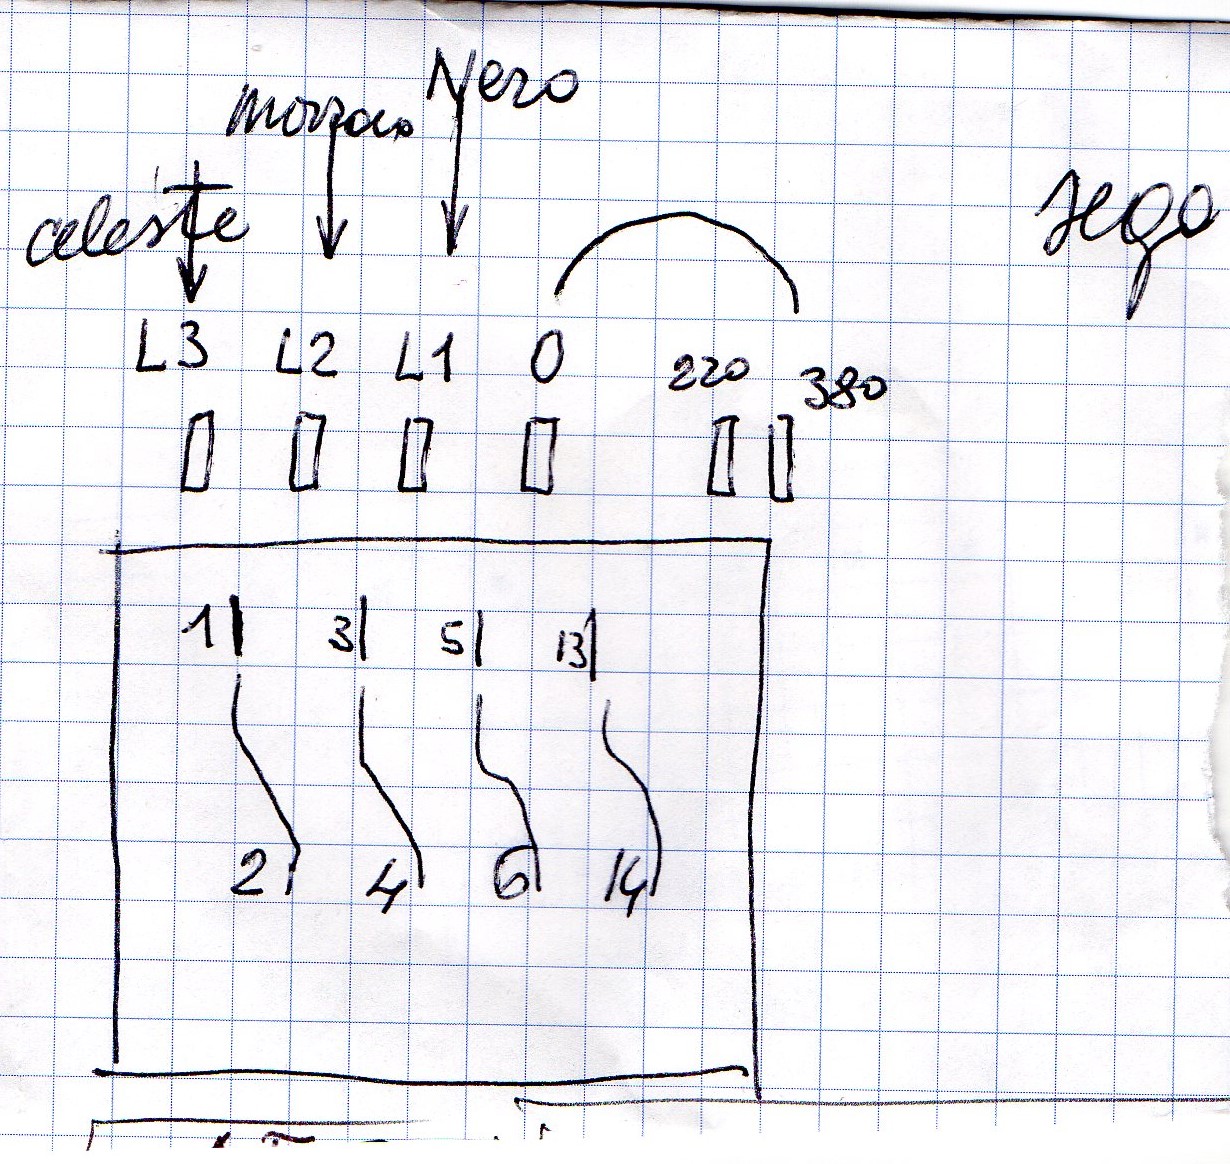 Nero
celeste
sega
L3 L2 L1 0 220 380
1 3 5 13
2 4 6 14